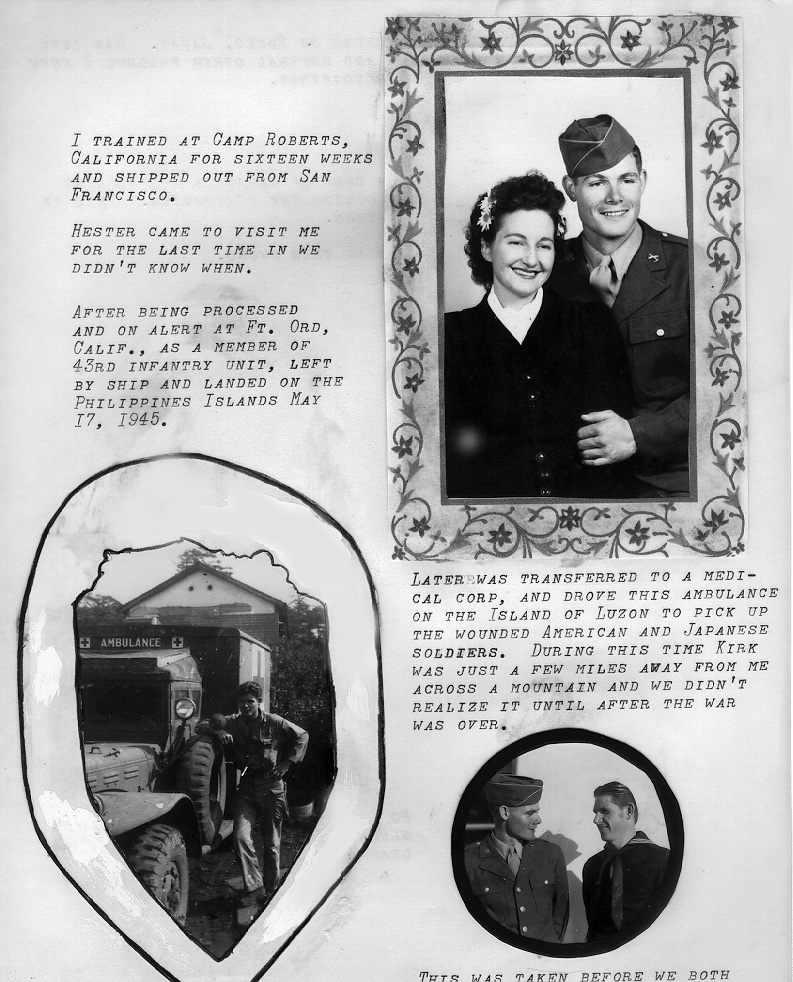 I TRAINED AT CAMP ROBERTS,
CALIFORNIA FOR SIXTEEN WEEKS
AND SHIPPED OUT FROM SAN
FRANCISCO.
HESTER CAME TO VISIT ME
FOR THE LAST TIME IN WE
DIDN'T KNOW WHEN.
AFTER BEING PROCESSED
AND ON ALERT AT FT. ORD,
CALIF., AS A MEMBER OF
43RD INFANTRY UNIT, LEFT
BY SHIP AND LANDED ON THE
PHILIPPINES ISLANDS MAY
17, 1945.
AMBULANCE
LATER WAS TRANSFERRED TO A MEDI-
CAL CORP, AND DROVE THIS AMBULANCE
ON THE ISLAND OF LUZON TO PICK UP
THE WOUNDED AMERICAN AND JAPANESE
SOLDIERS. DURING THIS TIME KIRK
WAS JUST A FEW MILES AWAY FROM ME
ACROSS A MOUNTAIN AND WE DIDN'T
REALIZE IT UNTIL AFTER THE WAR
WAS OVER.
THIS WAS TAKEN BEFORE WE BOTH